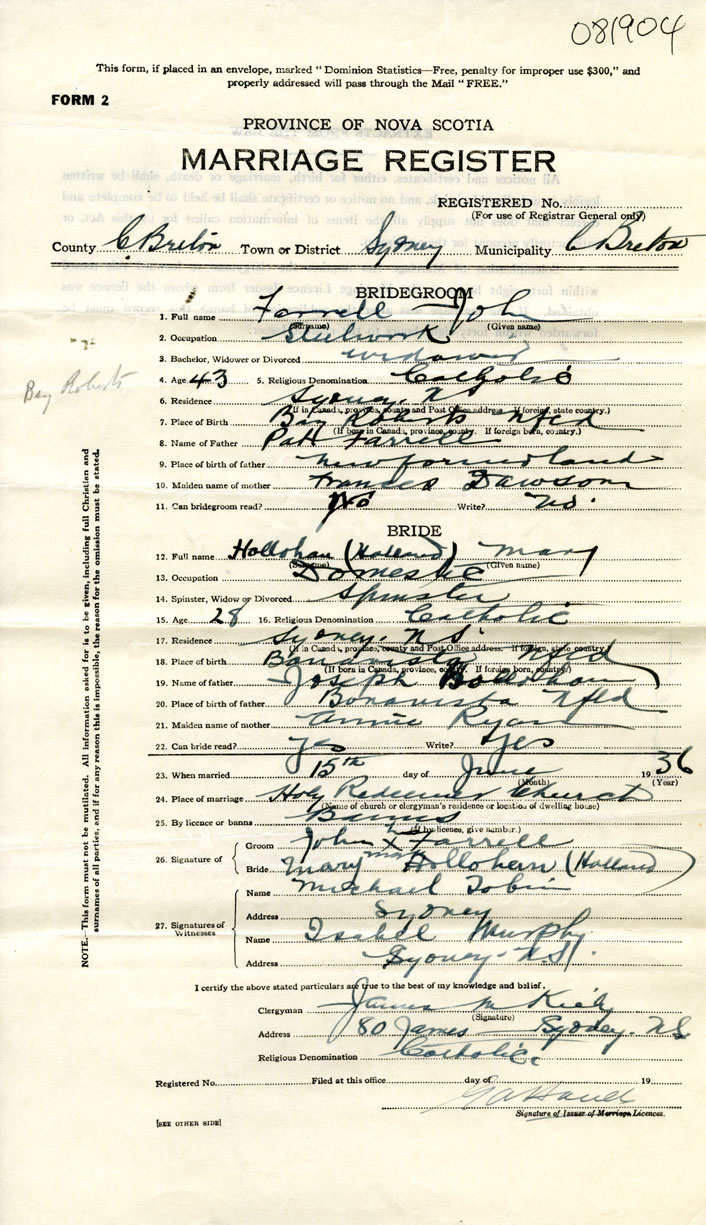 081904
This form, if placed in an envelope, marked "Dominion Statistics—Free, penalty for improper use $300," and
properly addressed will pass through the Mail "FREE."
FORM 2
PROVINCE OF NOVA SCOTIA
MARRIAGE REGISTER
REGISTERED No.
(For use of Registrar General only)
County C. Breton Town or District Sydney Municipality C Breton
BRIDEGROOM
1. Full name Farrell John
(Surname) (Given name)
2. Occupation Steelwork
3. Bachelor, Widower or Divorced widower
4. Age 43 5. Religious Denomination Catholic
Bay Roberts
6. Residence Sydney. N S
(If in Canada, province, county and Post Office address. If foreign, state country.)
7. Place of Birth Bay Roberts Nfld
(If born in Canada, province, county. If foreign born, country.)
8. Name of Father Patt Farrell
9. Place of birth of father newfoundland
10. Maiden name of mother Frances Dawson
11. Can bridegroom read? No Write? No.
BRIDE
12. Full name Hollohan (Holland) Mary
(Surname) (Given name)
13. Occupation Domestic
14. Spinster, Widow or Divorced Spinster
15. Age 28 16. Religious Denomination Catholic
17. Residence Sydney. N S
(If in Canada, province, county and Post Office address. If foreign, state country.)
18. Place of birth Bonavista Nfld
(If born in Canada, province, county. If foreign born, country.)
19. Name of father Joseph Hollohan
20. Place of birth of father Bonavista Nfld
21. Maiden name of mother Annie Ryan
22. Can bride read? yes Write? Yes
23. When married 15th day of June 1936
(Month) (Year)
24. Place of marriage Holy Redeemer Church
(Name of church or clergyman's residence or location of dwelling house)
25. By licence or banns Banns
(If by licence, give number.)
26. Signature of
Groom John his X mark Farrell
Bride Mary Hollohan (Holland)
27. Signatures of Witnesses
Name Michael Tobin
Address Sydney
Name Isabel Murphy
Address Sydney N S.
I certify the above stated particulars are true to the best of my knowledge and belief.
Clergyman James M
(Signature)
Address 80 James Sydney. N S
Religious Denomination Catholic.
Registered No. Filed at this office day of 19
Signature of Issuer of Marriage Licences.
[SEE OTHER SIDE]
NOTE.—This form must not be mutilated. All information asked for is to be given, including full Christian and
surnames of all parties, and if for any reason this is impossible, the reason for the omission must be stated.